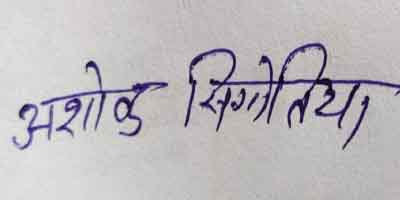 अशोक सिंगोतिया